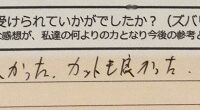 受けられていかがでしたか？（ズバリ
な感想が、私達の何よりの力となり今後の参考と
かった。カットも良かった。